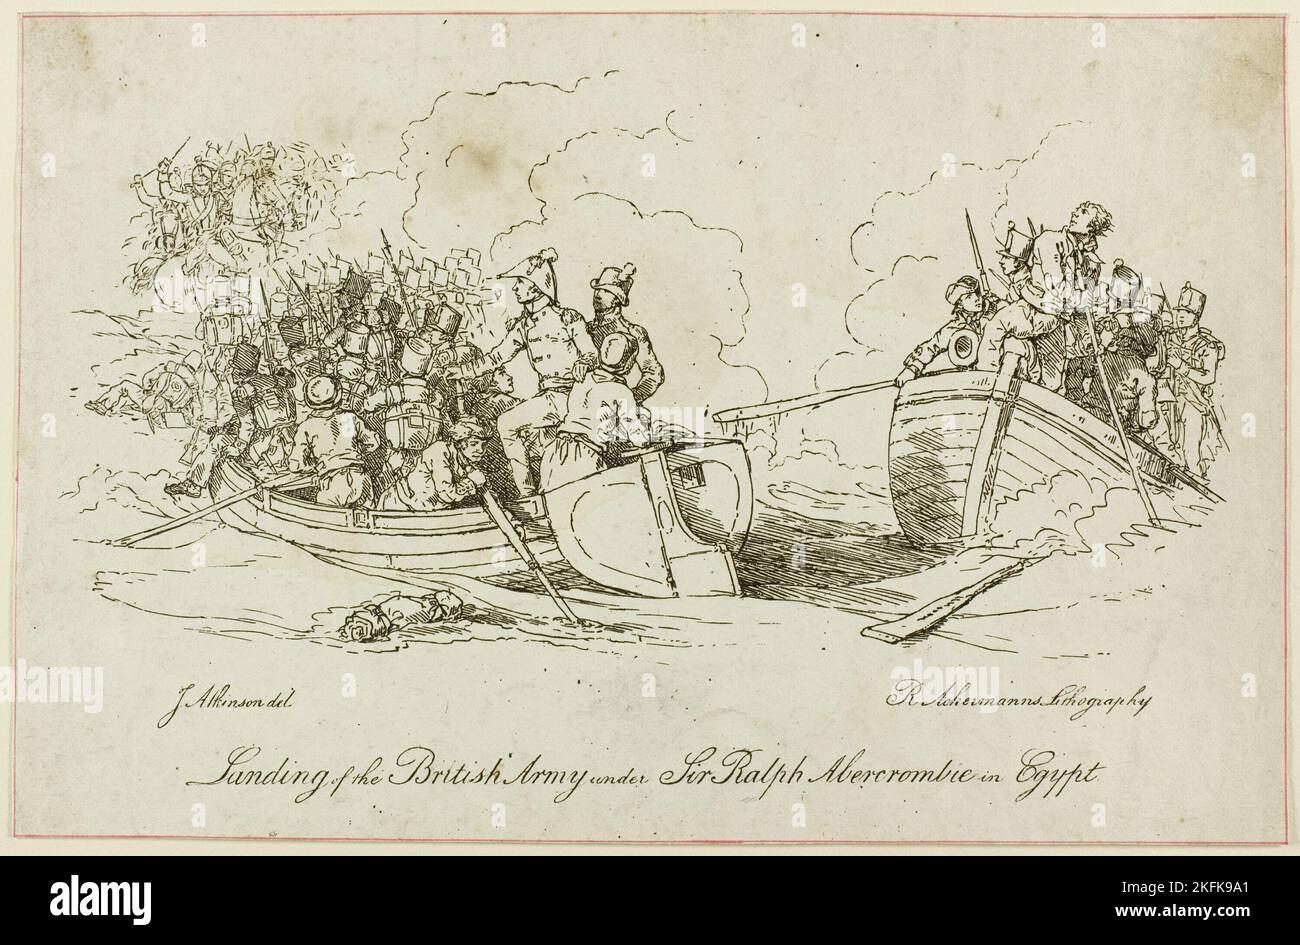 J Atkinson del.
R Ackermanns Lithography
Landing of the British Army under Sir Ralph Abercrombie in Egypt.
alamy
alamy
Image ID: 2KFK9A1
www.alamy.com